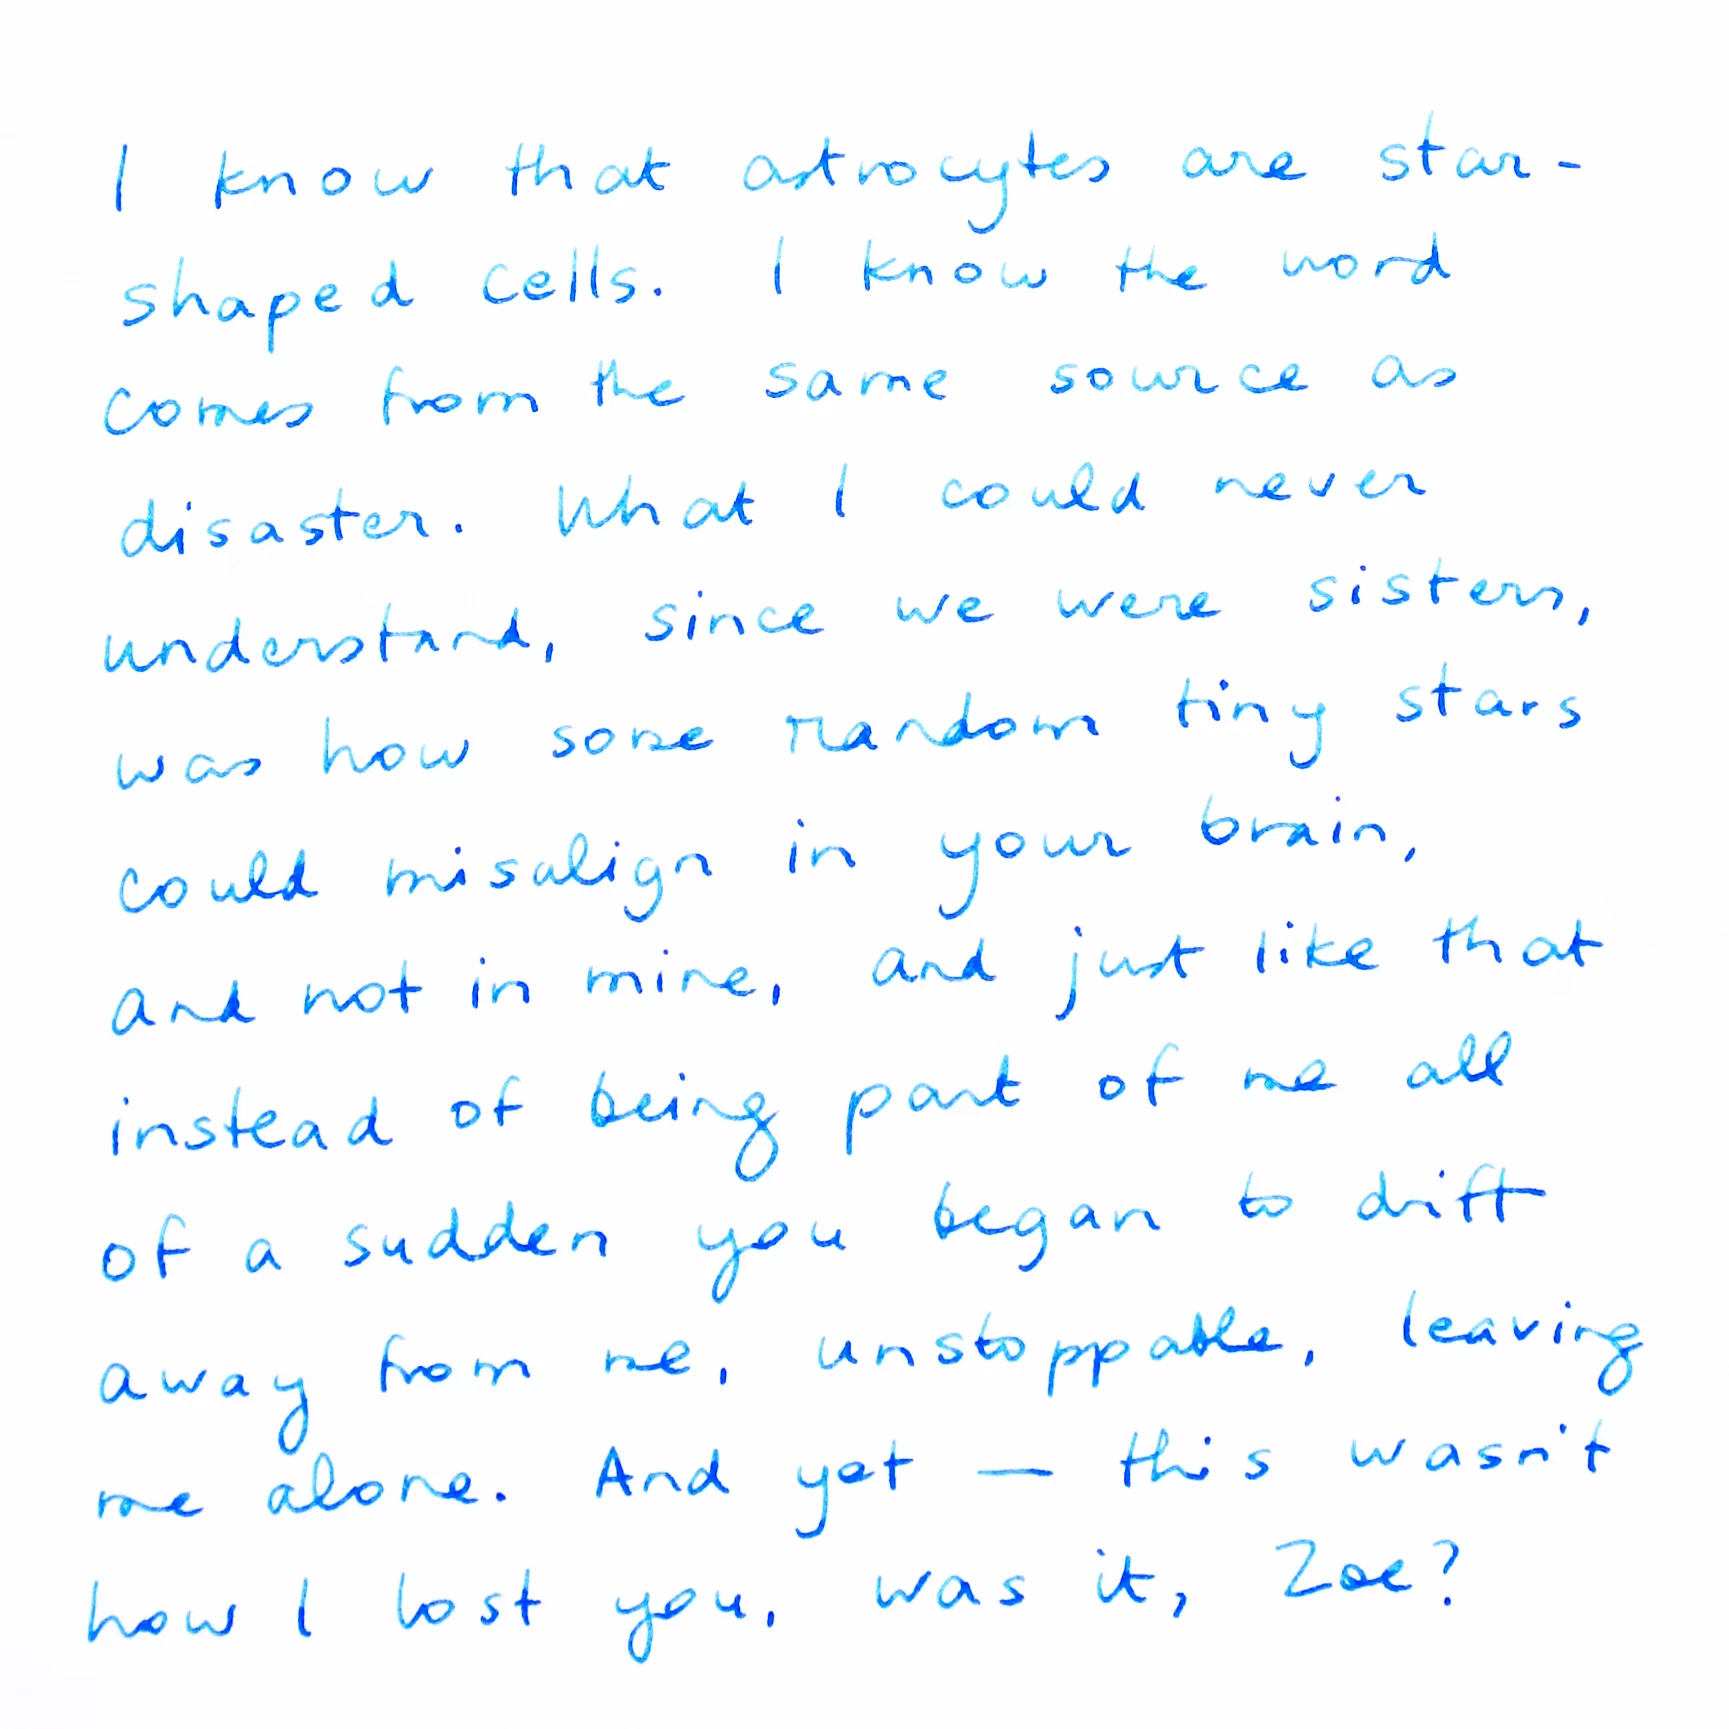 I know that astrocytes are star-
shaped cells. I know the word
comes from the same source as
disaster. What I could never
understand, since we were sisters,
was how some random tiny stars
could misalign in your brain,
and not in mine, and just like that
instead of being part of me all
of a sudden you began to drift
away from me, unstoppable, leaving
me alone. And yet — this wasn't
how I lost you, was it, Zoe?